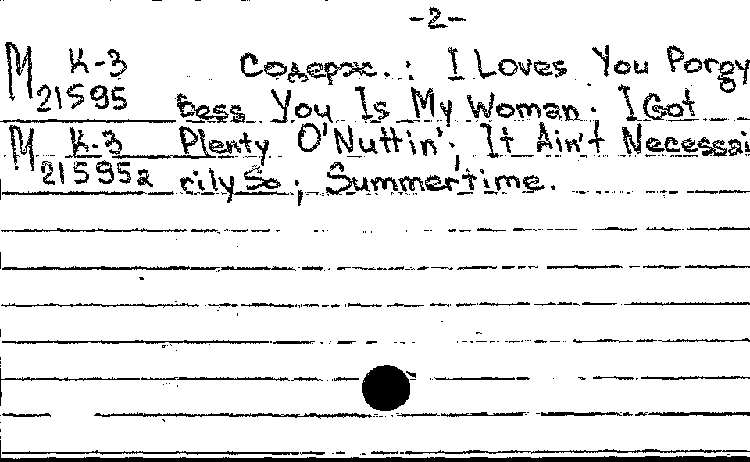 -2-
М К-3 Содерж.: I Loves You Porgy
21595 Bess You Is My Woman; I Got
М К-3 Plenty O'Nuttin'; It Ain't Necessai
21595a rily So; Summertime.